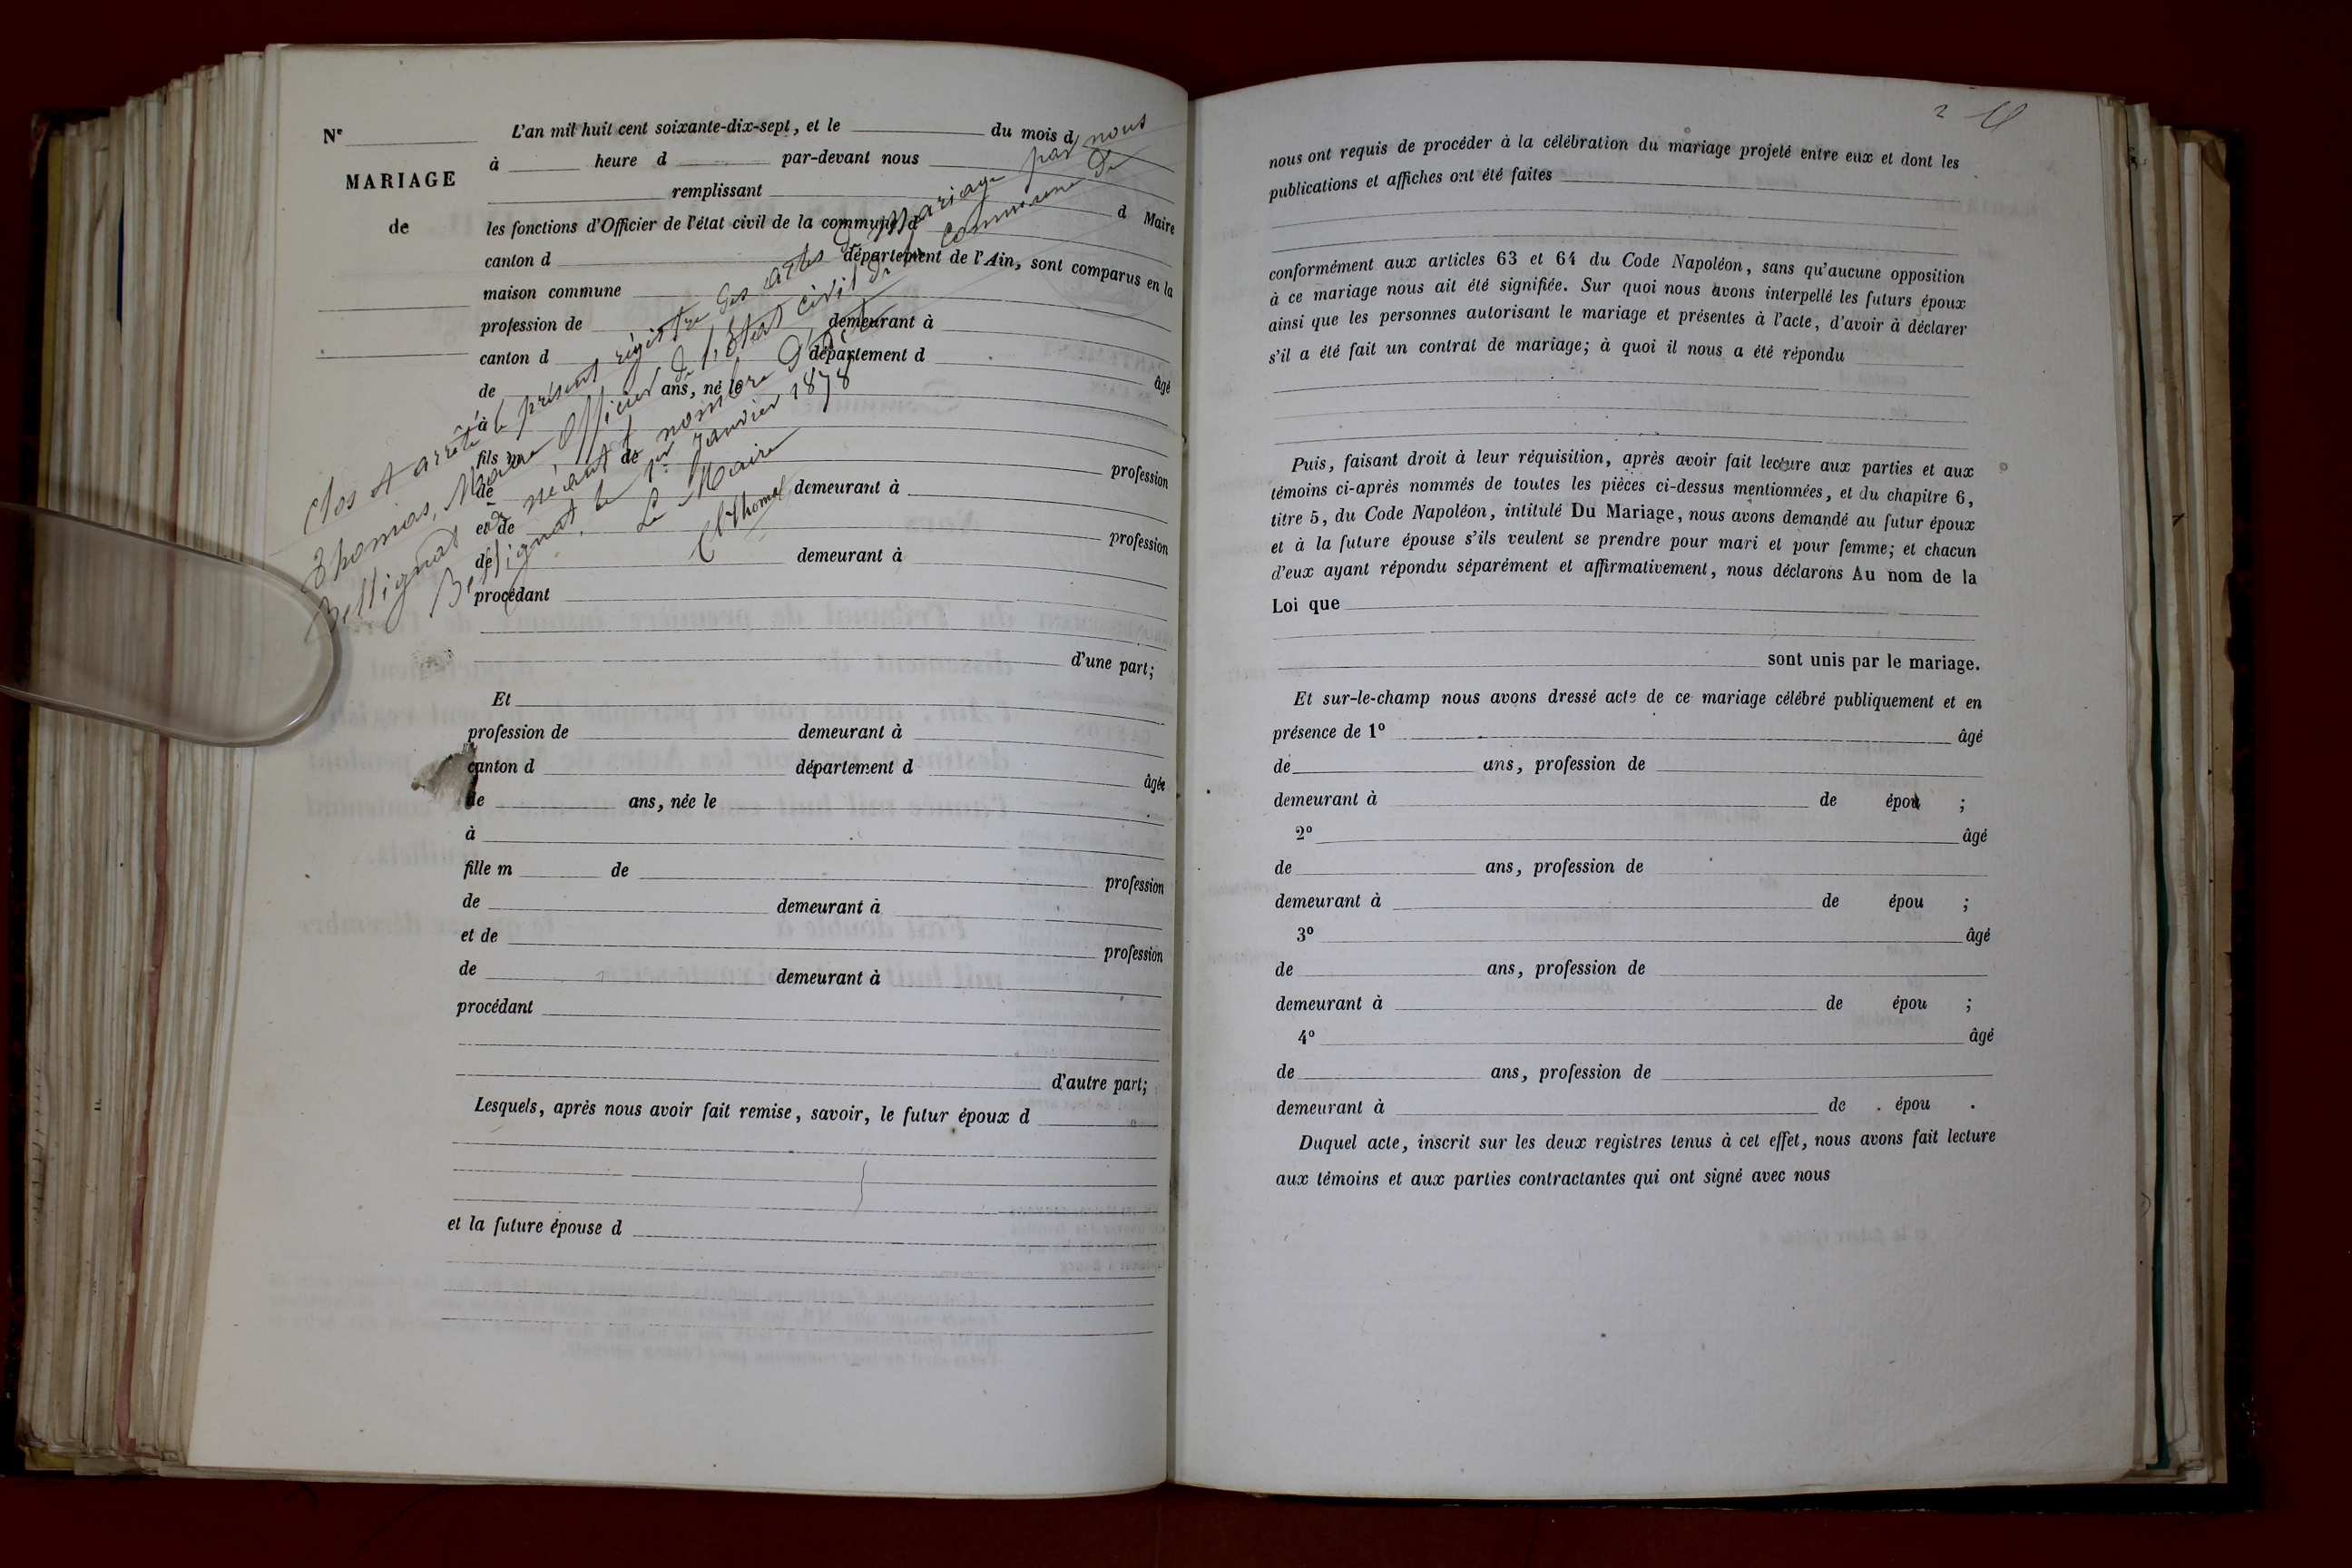 N° L'an mil huit cent soixante-dix-sept, et le du mois d
MARIAGE
de
à heure d par-devant nous
remplissant
les fonctions d'Officier de l'état civil de la commune d d Maire
canton d département de l'Ain, sont comparus en la
maison commune
profession de demeurant à
canton d département d
de ans, né le âgé
à
fils m de profession
de demeurant à
et de profession
de demeurant à
procédant
d'une part;
Clos et arrêté le présent régistre des actes de Mariage par nous
Thomas, Maire Officier de l'État civil de la commune de
Bellignat de néant nombre d'acte
Bellignat, le 1er Janvier 1878
Le Maire
Cl Thomas
Et
profession de demeurant à
canton d département d
de ans, née le âgée
à
fille m de profession
de demeurant à
et de profession
de demeurant à
procédant
d'autre part;
Lesquels, après nous avoir fait remise, savoir, le futur époux d
et la future épouse d
2
nous ont requis de procéder à la célébration du mariage projeté entre eux et dont les
publications et affiches ont été faites
conformément aux articles 63 et 64 du Code Napoléon, sans qu'aucune opposition
à ce mariage nous ait été signifiée. Sur quoi nous avons interpellé les futurs époux
ainsi que les personnes autorisant le mariage et présentes à l'acte, d'avoir à déclarer
s'il a été fait un contrat de mariage; à quoi il nous a été répondu
Puis, faisant droit à leur réquisition, après avoir fait lecture aux parties et aux
témoins ci-après nommés de toutes les pièces ci-dessus mentionnées, et du chapitre 6,
titre 5, du Code Napoléon, intitulé Du Mariage, nous avons demandé au futur époux
et à la future épouse s'ils veulent se prendre pour mari et pour femme; et chacun
d'eux ayant répondu séparément et affirmativement, nous déclarons Au nom de la
Loi que
sont unis par le mariage.
Et sur-le-champ nous avons dressé acte de ce mariage célébré publiquement et en
présence de 1° âgé
de ans, profession de
demeurant à de épou ;
2° âgé
de ans, profession de
demeurant à de épou ;
3° âgé
de ans, profession de
demeurant à de épou ;
4° âgé
de ans, profession de
demeurant à de épou .
Duquel acte, inscrit sur les deux registres tenus à cet effet, nous avons fait lecture
aux témoins et aux parties contractantes qui ont signé avec nous